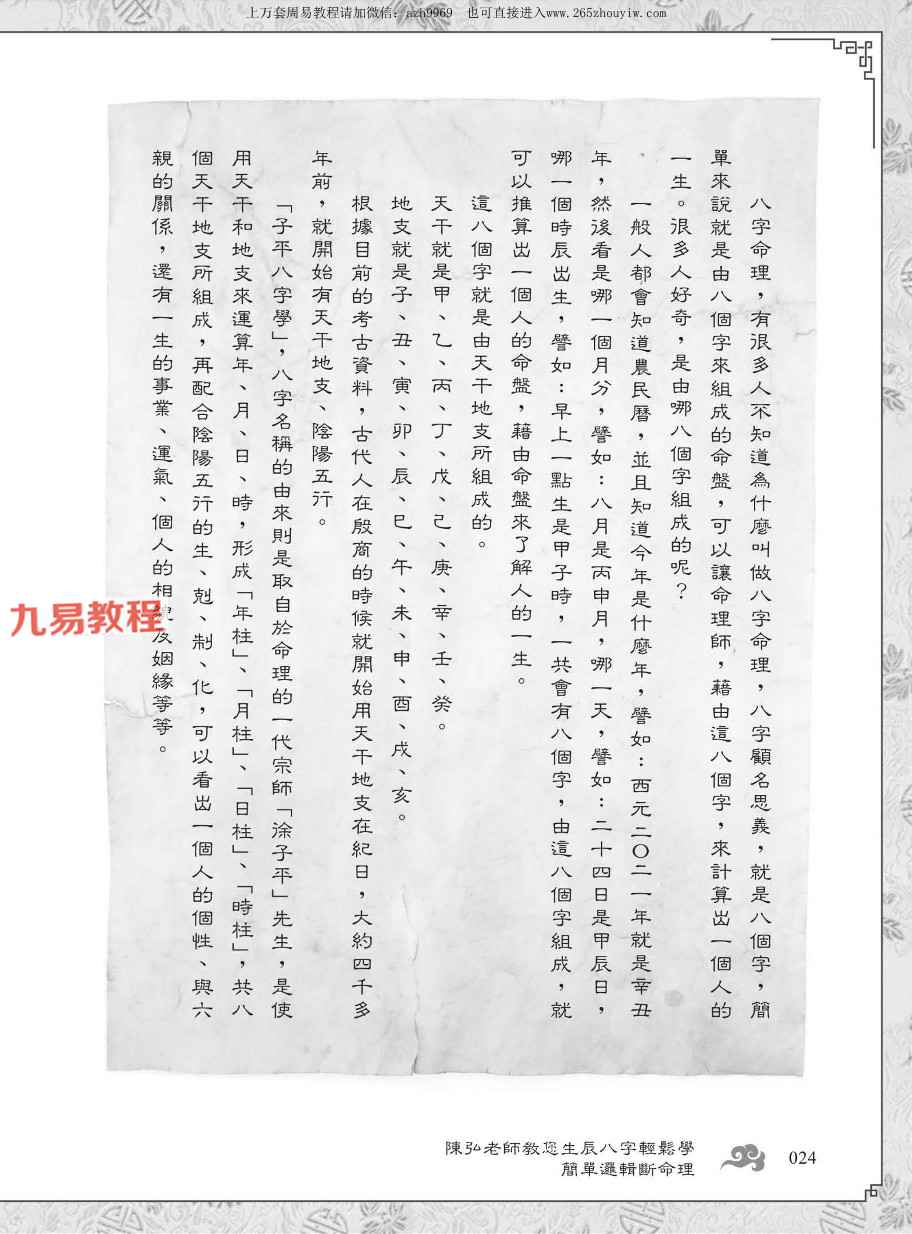 上万套周易教程请加微信：azh9969　也可直接进入www.265zhouyiw.com
八字命理，有很多人不知道為什麼叫做八字命理，八字顧名思義，就是八個字，簡
單來說就是由八個字來組成的命盤，可以讓命理師，藉由這八個字，來計算出一個人的
一生。很多人好奇，是由哪八個字組成的呢？
一般人都會知道農民曆，並且知道今年是什麼年，譬如：西元二〇二一年就是辛丑
年，然後看是哪一個月分，譬如：八月是丙申月，哪一天，譬如：二十四日是甲辰日，
哪一個時辰出生，譬如：早上一點生是甲子時，一共會有八個字，由這八個字組成，就
可以推算出一個人的命盤，藉由命盤來了解人的一生。
這八個字就是由天干地支所組成的。
天干就是甲、乙、丙、丁、戊、己、庚、辛、壬、癸。
地支就是子、丑、寅、卯、辰、巳、午、未、申、酉、戌、亥。
根據目前的考古資料，古代人在殷商的時候就開始用天干地支在紀日，大約四千多
年前，就開始有天干地支、陰陽五行。
「子平八字學」，八字名稱的由來則是取自於命理的一代宗師「涂子平」先生，是使
用天干和地支來運算年、月、日、時，形成「年柱」、「月柱」、「日柱」、「時柱」，共八
個天干地支所組成，再配合陰陽五行的生、剋、制、化，可以看出一個人的個性、與六
親的關係，還有一生的事業、運氣、個人的相 及姻緣等等。
九易教程
陳弘老師教您生辰八字輕鬆學
簡單邏輯斷命理
024